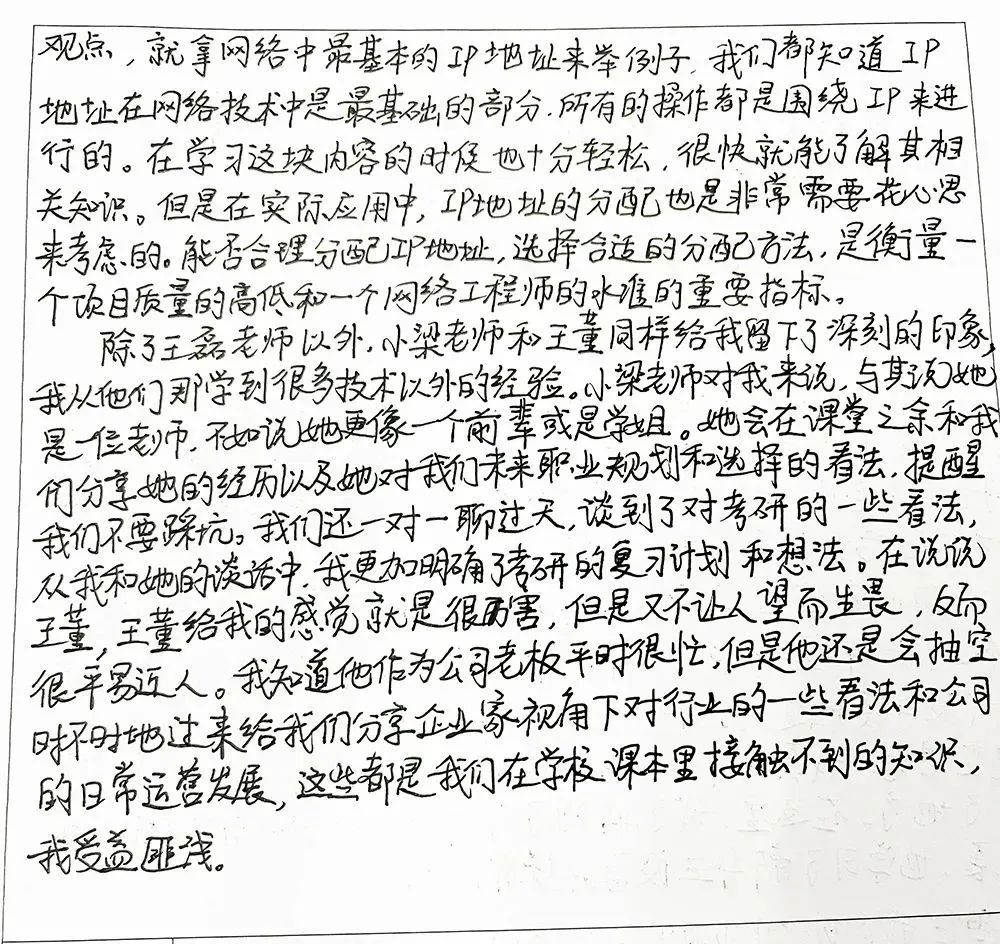 观点，就拿网络中最基本的IP地址来举例子，我们都知道IP
地址在网络技术中是最基础的部分，所有的操作都是围绕IP来进
行的。在学习这块内容的时候也十分轻松，很快就能了解其相
关知识。但是在实际应用中，IP地址的分配也是非常需要花心思
来考虑的。能否合理分配IP地址，选择合适的分配方法，是衡量一
个项目质量的高低和一个网络工程师的水准的重要指标。
除了王磊老师以外，小梁老师和王董同样给我留下了深刻的印象，
我从他们那学到很多技术以外的经验。小梁老师对我来说，与其说她
是一位老师，不如说她更像一个前辈或是学姐。她会在课堂之余和我
们分享她的经历以及她对我们未来职业规划和选择的看法，提醒
我们不要踩坑。我们还一对一聊过天，谈到了对考研的一些看法，
从我和她的谈话中，我更加明确了考研的复习计划和想法。在说说
王董，王董给我的感觉就是很厉害，但是又不让人望而生畏，反而
很平易近人。我知道他作为公司老板平时很忙，但是他还是会抽空
时不时地过来给我们分享企业家视角下对行业的一些看法和公司
的日常运营发展，这些都是我们在学校课本里接触不到的知识，
我受益匪浅。